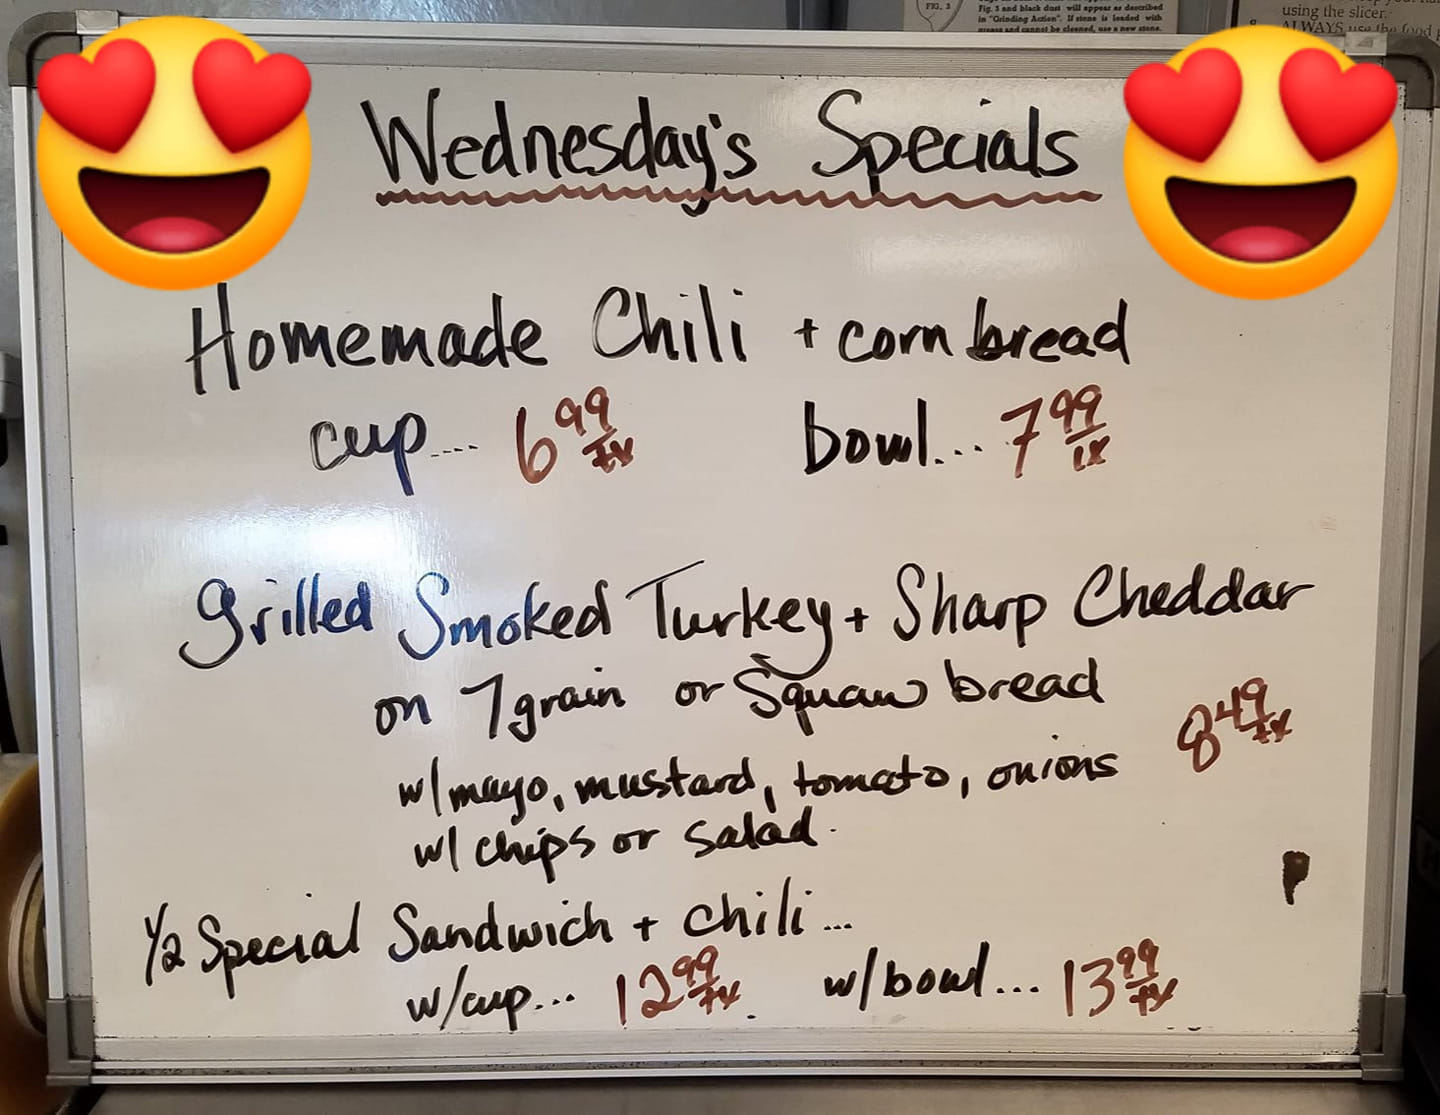 FIG. 3
Fig. 3 and black dust will appear as described
in "Grinding Action". If stone is loaded with
grease and cannot be cleaned, use a new stone.
using the slicer.
ALWAYS use the food
Wednesday's Specials
Homemade Chili + corn bread
cup.... 6 99 tx bowl... 7 99 tx
Grilled Smoked Turkey + Sharp Cheddar
on 7 grain or Squaw bread
8 49 tx
w/mayo, mustard, tomato, onions
w/ chips or salad.
1/2 Special Sandwich + chili...
w/cup... 12 99 tx w/bowl... 13 99 tx